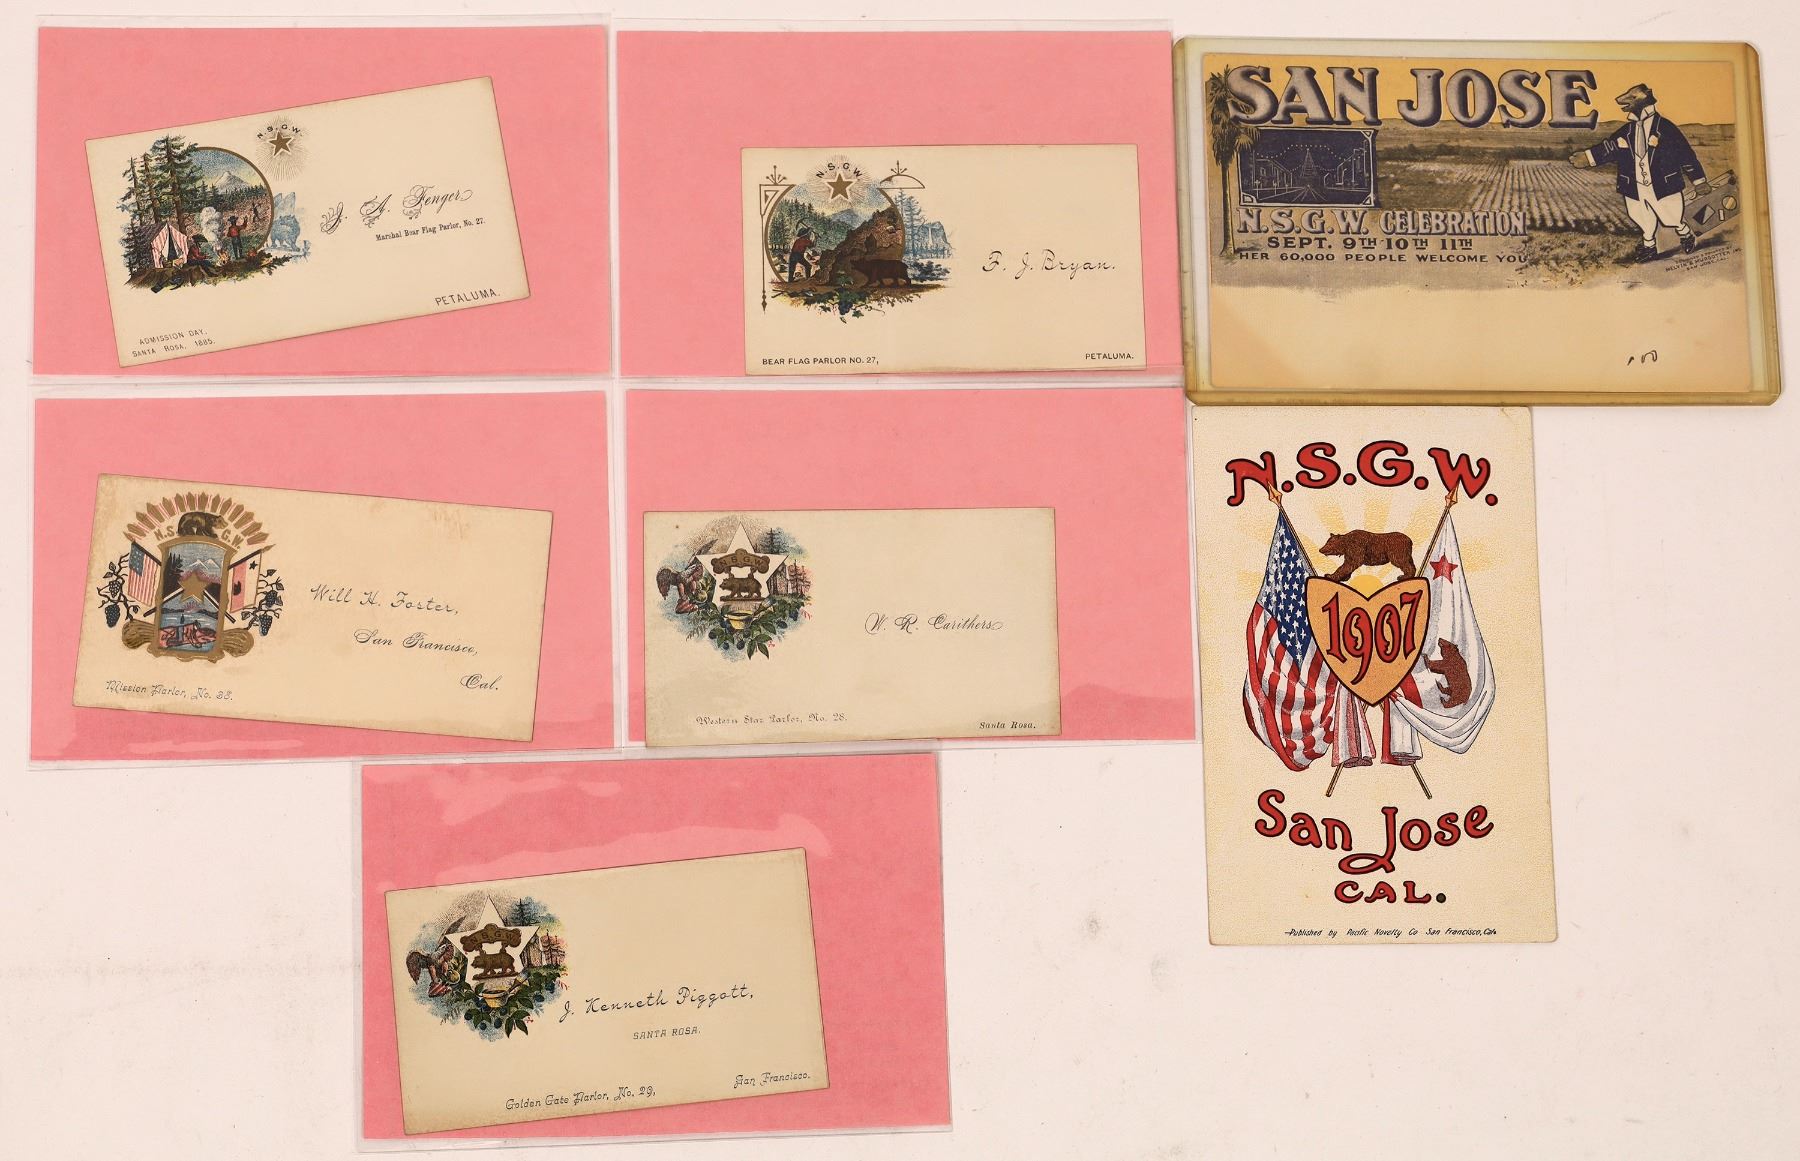 N.S.G.W.
J. A. Fenger
Marshal Bear Flag Parlor, No. 27.
PETALUMA.
ADMISSION DAY,
SANTA ROSA, 1885.
N.S.G.W
F. J. Bryan.
BEAR FLAG PARLOR NO. 27,
PETALUMA.
SAN JOSE
N.S.G.W. CELEBRATION
SEPT. 9TH 10TH 11TH
HER 60,000 PEOPLE WELCOME YOU
N.S.G.W.
Will H. Foster,
San Francisco,
Cal.
Mission Parlor, No. 38.
N.S.G.W.
W. R. Carithers
Western Star Parlor, No. 28.
Santa Rosa.
N.S.G.W.
1907
San Jose
CAL.
Published by Pacific Novelty Co San Francisco, Cal.
N.S.G.W.
J. Kenneth Piggott,
SANTA ROSA.
Golden Gate Parlor, No. 29,
San Francisco.